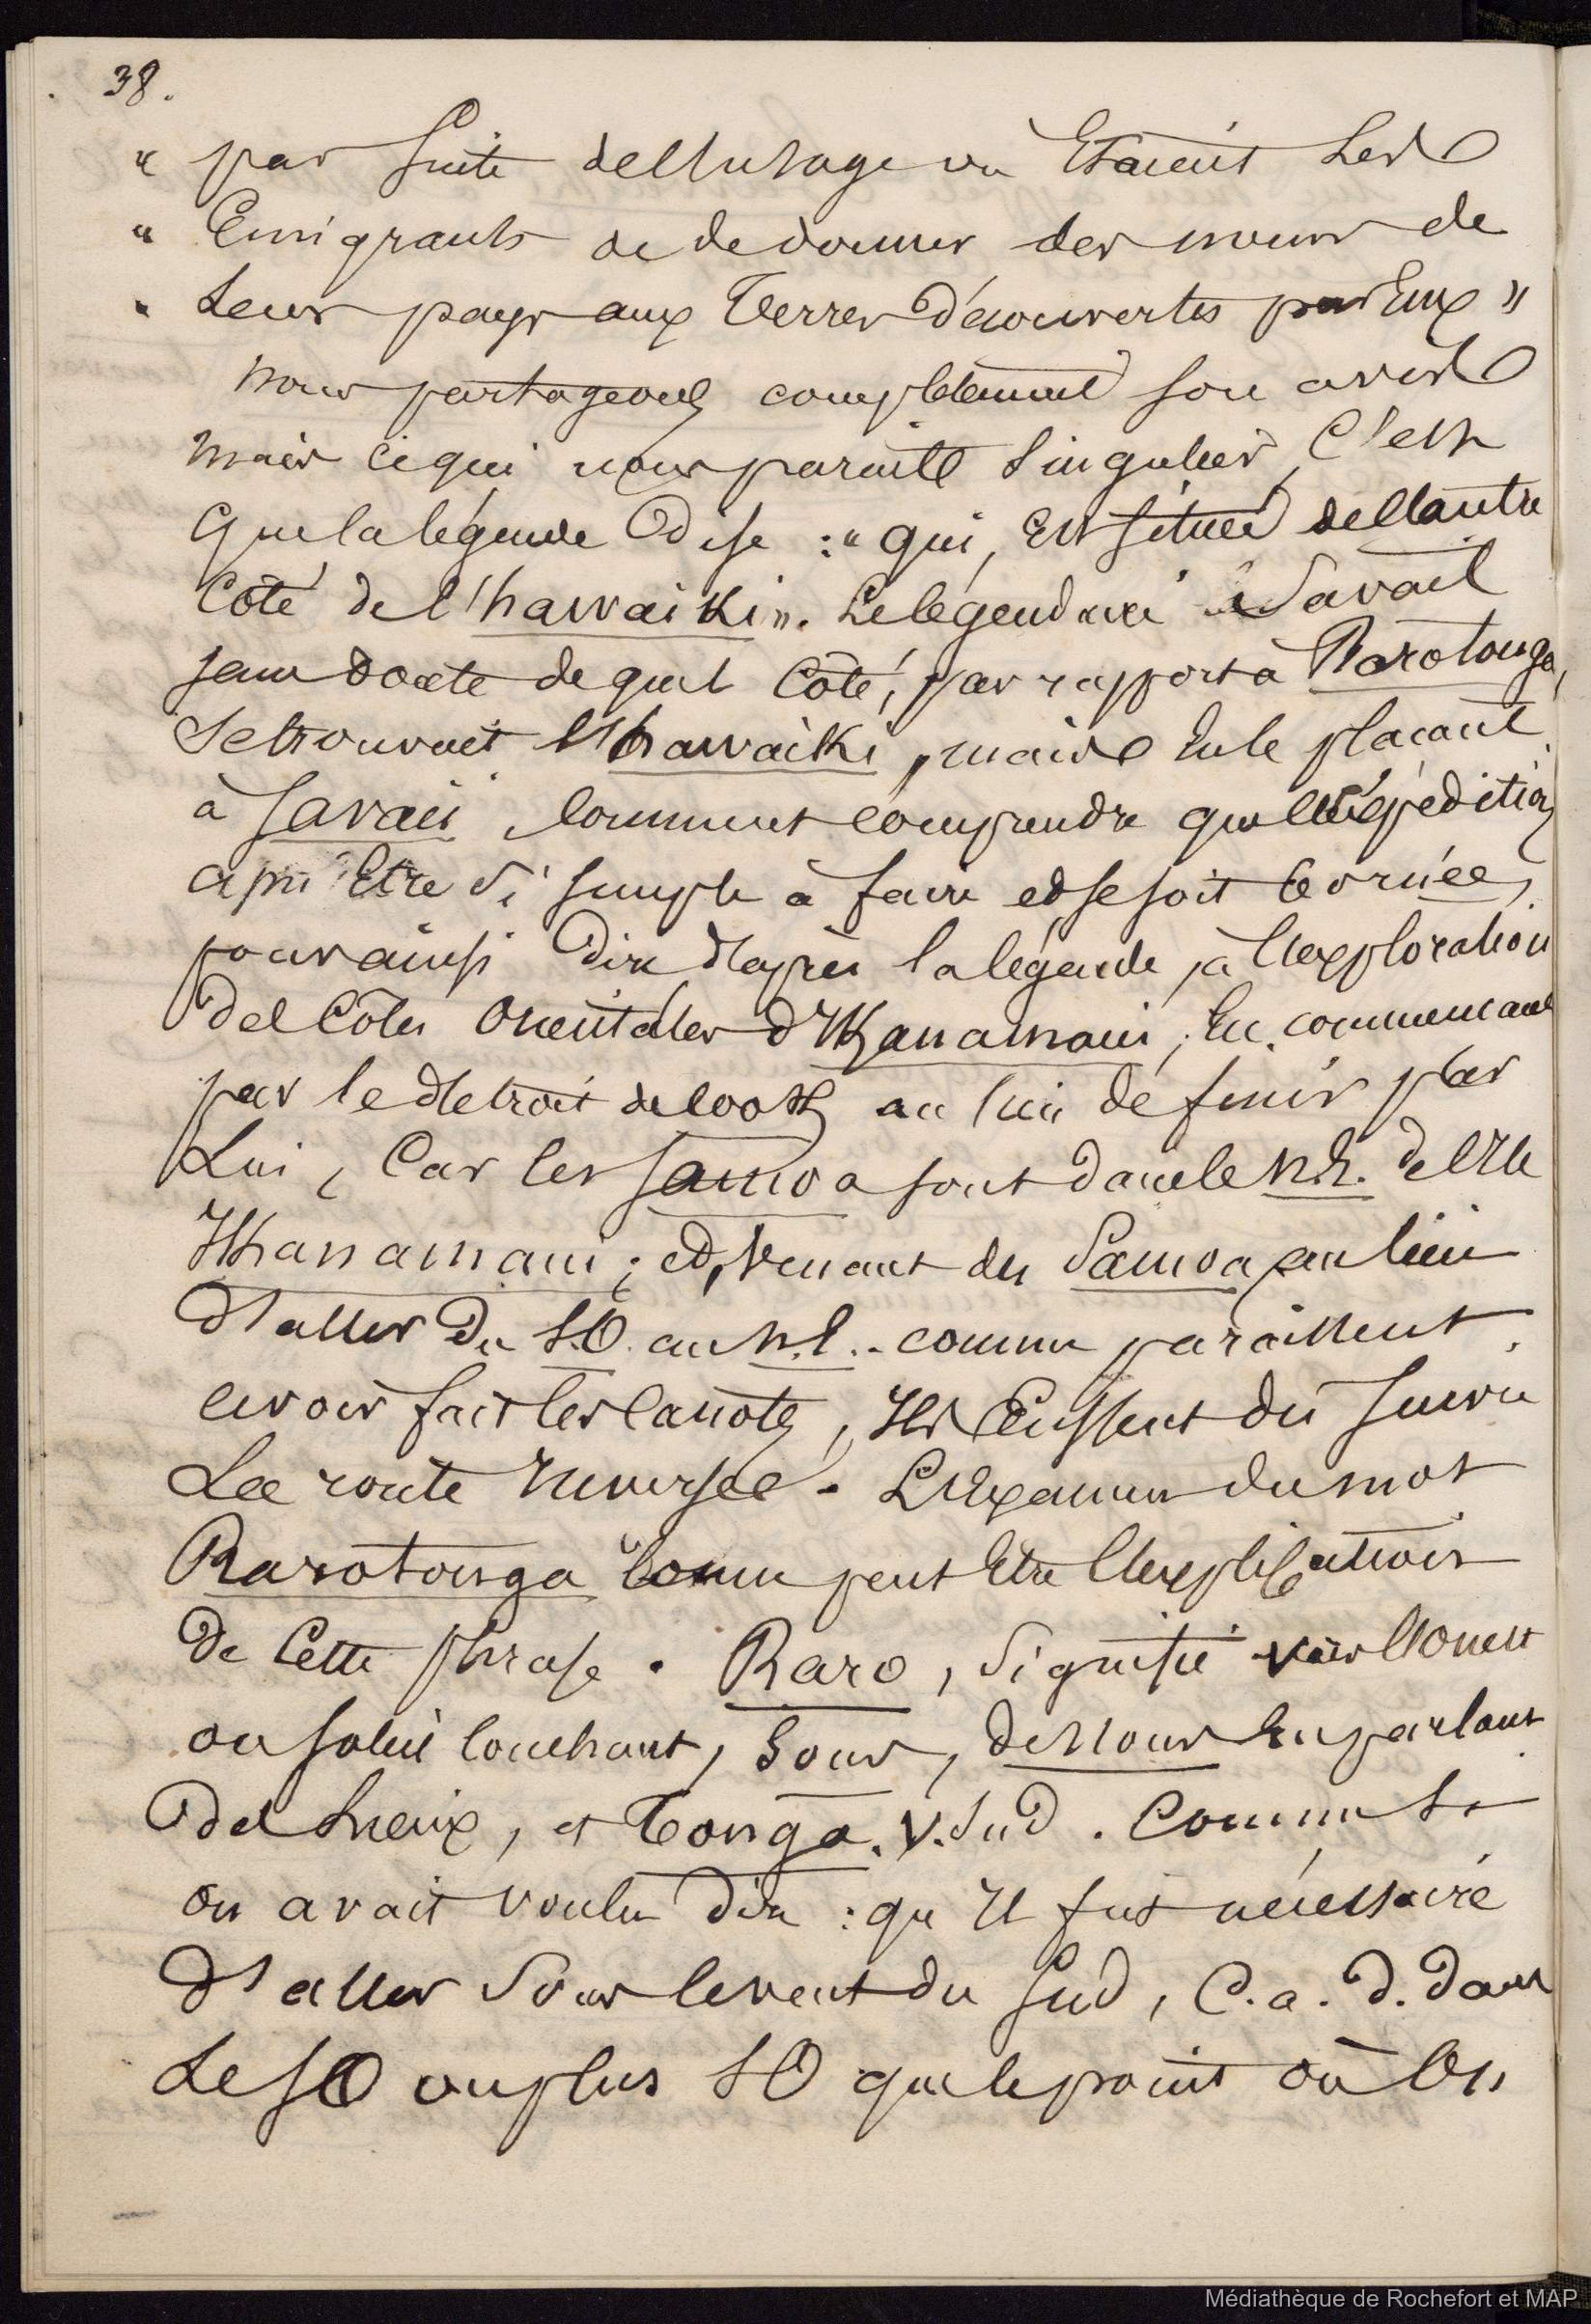 38.
" par suite de l'usage où étaient les
" Emigrants de donner des noms de
" Leur pays aux Terres Découvertes par Eux "
Nous partageons complètement son avis
mais ce qui nous paraît singulier, C'est
Que la légende Dise : " qui, Est située de l'autre
Côté de l'hawaiki ". Le légendaire Savait
sans doute de quel Côté, par rapport à Rarotonga,
Se trouvait l'hawaiki, mais En le plaçant
à Savaii, Comment comprendre que l'Expédition
a pu Etre si simple à faire et se soit bornée,
pour ainsi Dire d'après la légende, à l'exploration
Des Côtes Orientales d'Ikanamaui, En commençant
par le détroit de Cook au lieu de finir par
Lui, Car les Samoa sont dans le N.E. de l'Ile
Ikanamaui ; et, Venant des Samoa, au lieu
D'aller Du S.O. au N.E. comme paraissent
avoir fait les Canots, Ils Eussent dû suivre
La route Inverse. L'Examen du mot
Rarotonga donne peut Etre l'explication
De Cette phrase. Raro, Signifie vers l'Ouest
ou soleil Couchant, Sous, dessous En parlant
Des lieux, et Tonga. V. Sud. Comme Si
on avait voulu Dire : qu'Il fut nécessaire
D'aller Sous le vent du Sud, C.a.d. Dans
Le SO ou plus SO que le point où l'On
Médiathèque de Rochefort et MAP